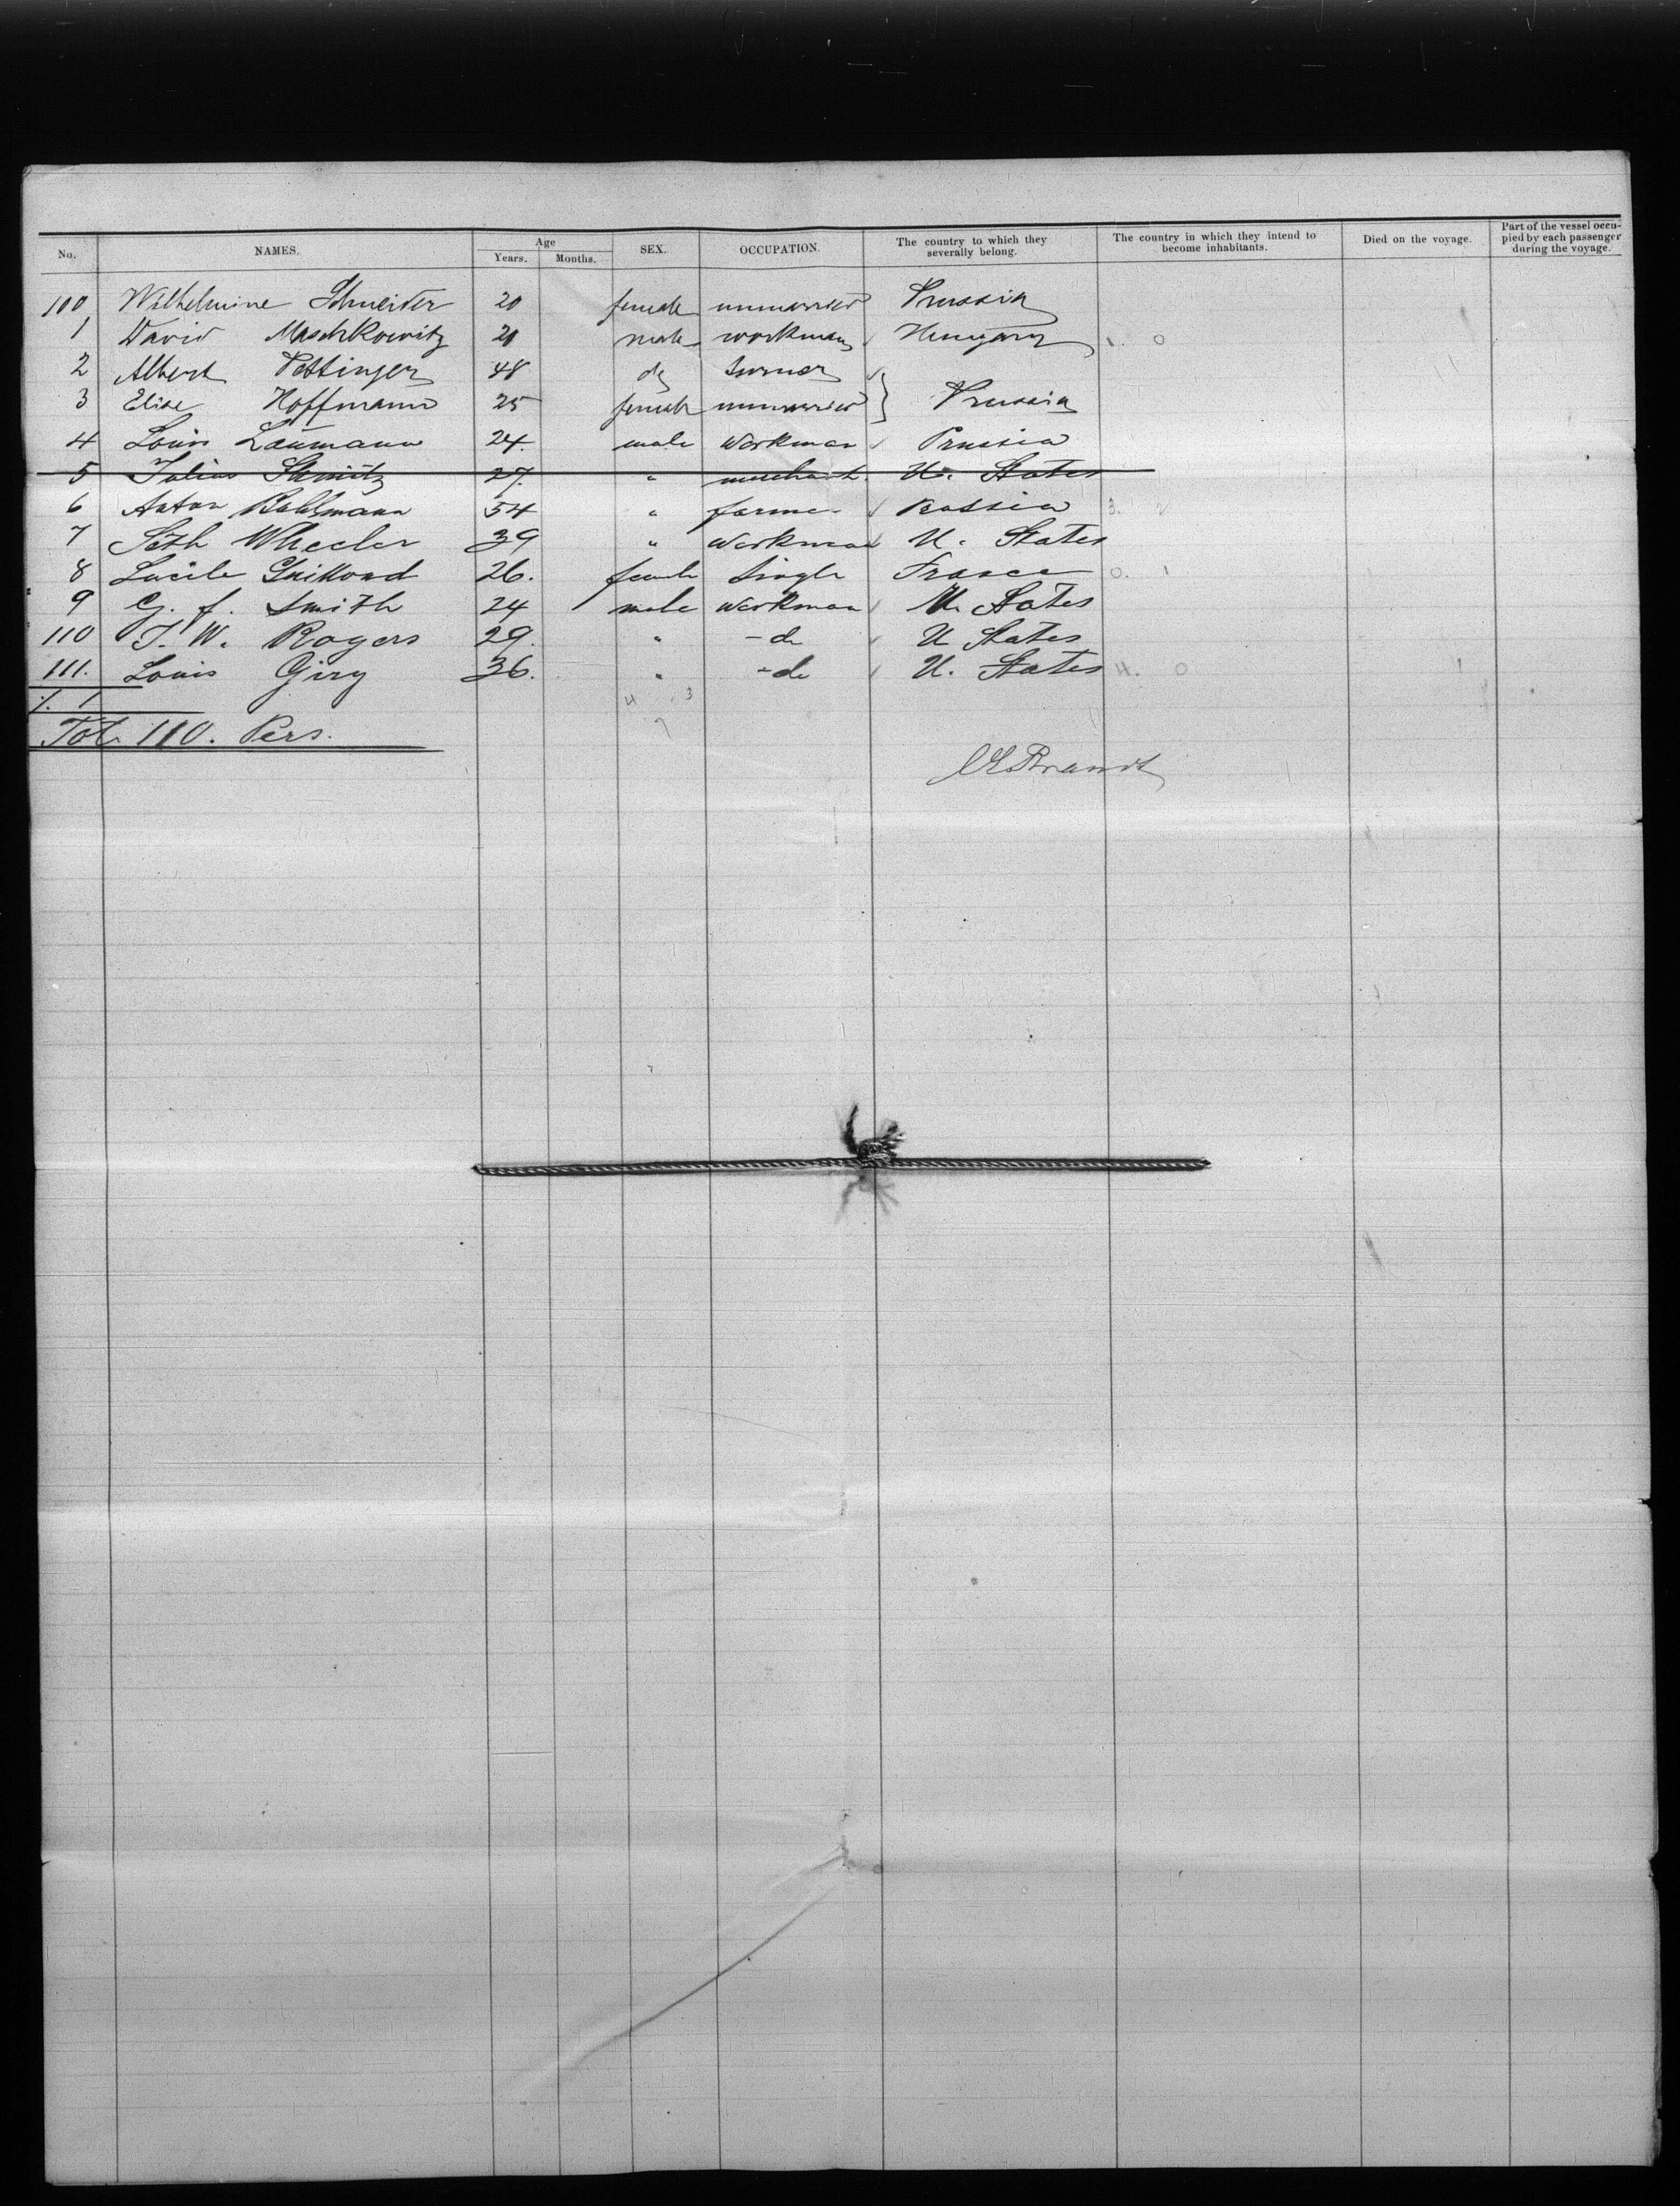 No. NAMES. Age Years. Months. SEX. OCCUPATION. The country to which they severally belong. The country in which they intend to become inhabitants. Died on the voyage. Part of the vessel occupied by each passenger during the voyage.
100 Wilhelmine Schneider 20 female unmarried Prussia
1 David Maschkowitz 20 male workman Hungary 1. 0
2 Albert Pettinger 48 do turner
3 Elise Hoffmann 25 female unmarried } Prussia
4 Louis Laumann 24. male Workman Prussia
5 Julius Schmitz 27. " merchant. U. States
6 Anton Bahlmann 54 " farmer Russia 3. 2
7 Seth Wheeler 39 " Workman U. States
8 Lucile 26. female single France 0. 1
9 G. f. Smith 24 male Workman U. States
110 J. W. Rogers 29. " - do U States
111. Louis Giry 36. " - do U. States 4. 0
%. 1 4 3
7
Tot. 110. Pers.
Brandt